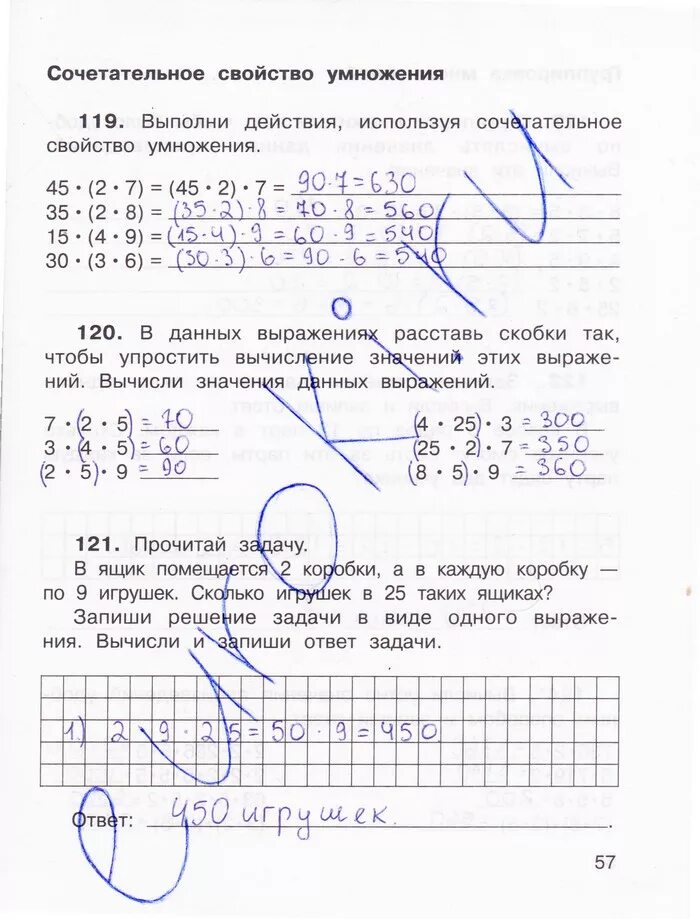 Сочетательное свойство умножения
119. Выполни действия, используя сочетательное
свойство умножения.
45 · (2 · 7) = (45 · 2) · 7 = 90·7=630
35 · (2 · 8) = (35·2)·8=70·8=560
15 · (4 · 9) = (15·4)·9=60·9=540
30 · (3 · 6) = (30·3)·6=90·6=540
120. В данных выражениях расставь скобки так,
чтобы упростить вычисление значений этих выраже-
ний. Вычисли значения данных выражений.
7 · (2 · 5) = 70 (4 · 25) · 3 = 300
3 · (4 · 5) = 60 (25 · 2) · 7 = 350
(2 · 5) · 9 = 90 (8 · 5) · 9 = 360
121. Прочитай задачу.
В ящик помещается 2 коробки, а в каждую коробку —
по 9 игрушек. Сколько игрушек в 25 таких ящиках?
Запиши решение задачи в виде одного выраже-
ния. Вычисли и запиши ответ задачи.
1.) 2 · 9 · 25 = 50 · 9 = 450
Ответ: 450 игрушек.
57